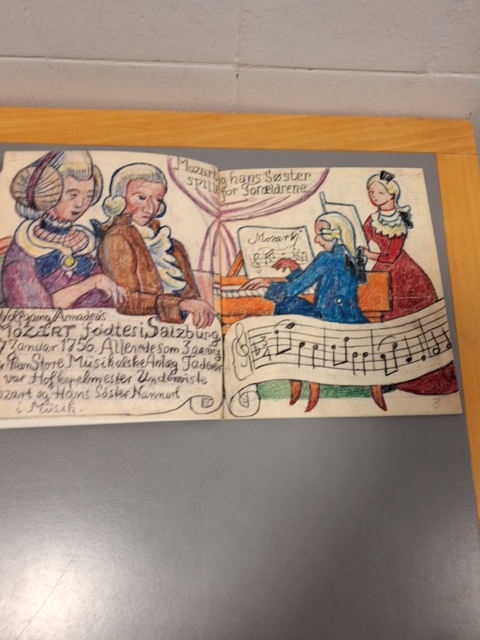 Mozart og hans Søster
spille for Forældrene
Mozart
Wolfgang Amadeus
MOZART Födtes i Salzburg
Januar 1756 Allerede som
Ham Store Musikalske Anlæg Faderen
var Hofkapelmester Underviste
Mozart og Hans Søster Nannerl
i Musik.
3